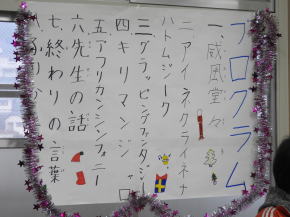 プログラム
一、威風堂々
二、アイネクライネナ
ハトムジーク
三、グラッピングファンタジー
四、キリマンジャロ
五、アフリカンシンフォニー
六、先生の話
七、終わりの言葉